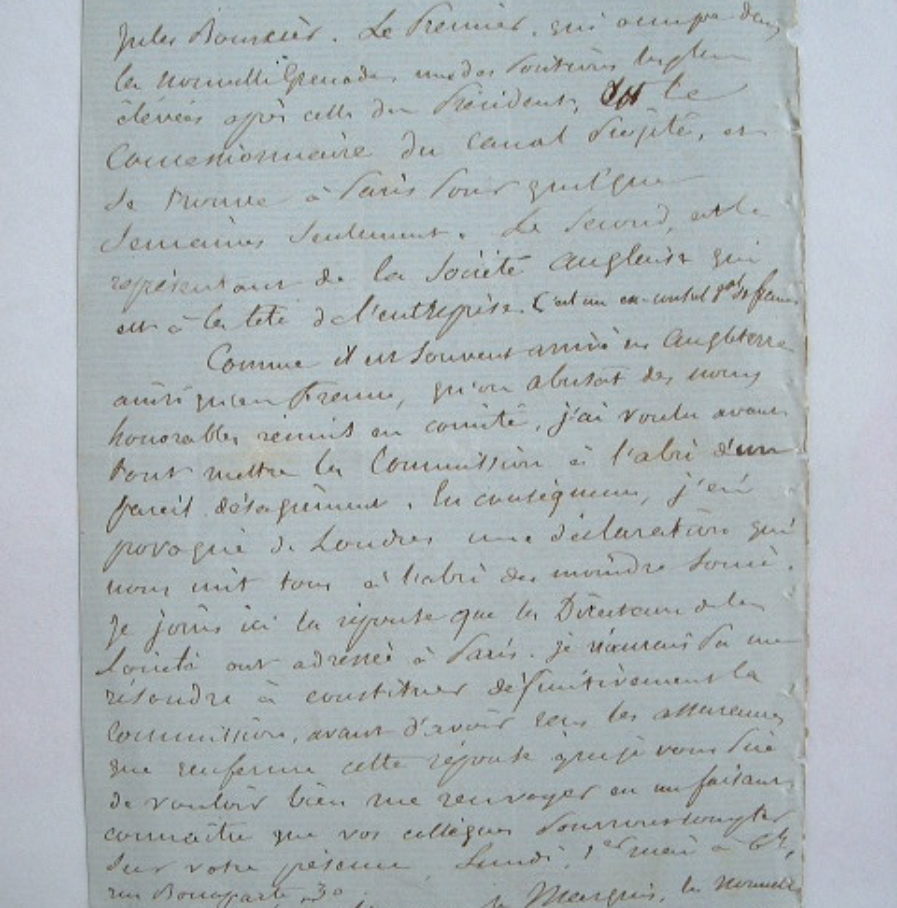 Jules Bourcier. Le Premier, qui occupe dans
la nouvelle Grenade, une des Positions les plus
élevées après celle du Président, est le
Concessionnaire du Canal Projeté, et
se trouve à Paris pour quelques
Semaines Seulement. Le Second, est le
représentant de la Société anglaise qui
est à la tête de l'entreprise. C'est un ex-consul gal de france
Comme il est Souvent arrivé en Angleterre
ainsi qu'en France, qu'on abusat des noms
honorables réunis en comité, j'ai voulu avant
tout mettre la Commission à l'abri d'un
pareil désagrément. En conséquence, j'ai
provoqué de Londres une déclaration qui
nous mit tous à l'abri du moindre Souci.
Je joins ici la réponse que les Directeurs de la
Société ont adressée à Paris. je n'aurais Pu me
résoudre à constituer définitivement la
Commission, avant d'avoir reçu les assurances
que renferme cette réponse que je vous Prie
de vouloir bien me renvoyer en me faisant
connaître que vos collègues Pourront compter
Sur votre présence, Lundi, 1er mai à
rue Bonaparte, 30
Marquis, la nouvelle